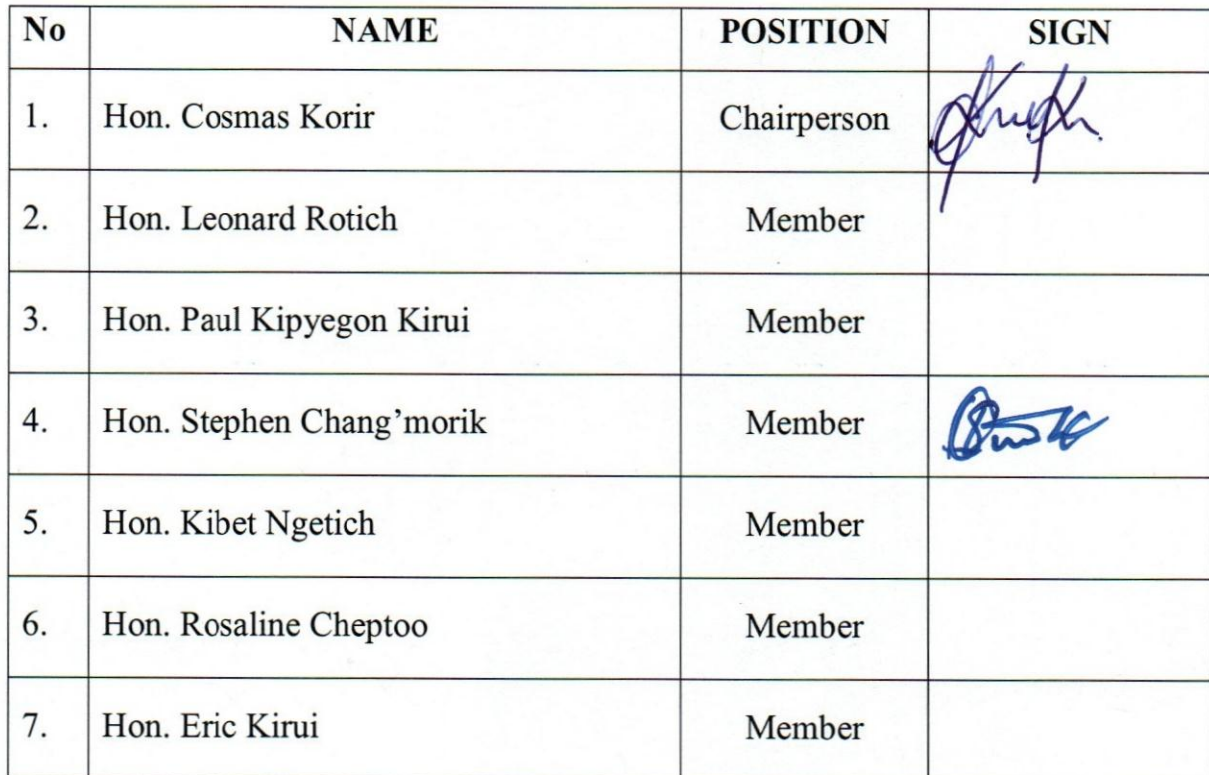 No NAME POSITION SIGN
1. Hon. Cosmas Korir Chairperson
2. Hon. Leonard Rotich Member
3. Hon. Paul Kipyegon Kirui Member
4. Hon. Stephen Chang’morik Member
5. Hon. Kibet Ngetich Member
6. Hon. Rosaline Cheptoo Member
7. Hon. Eric Kirui Member